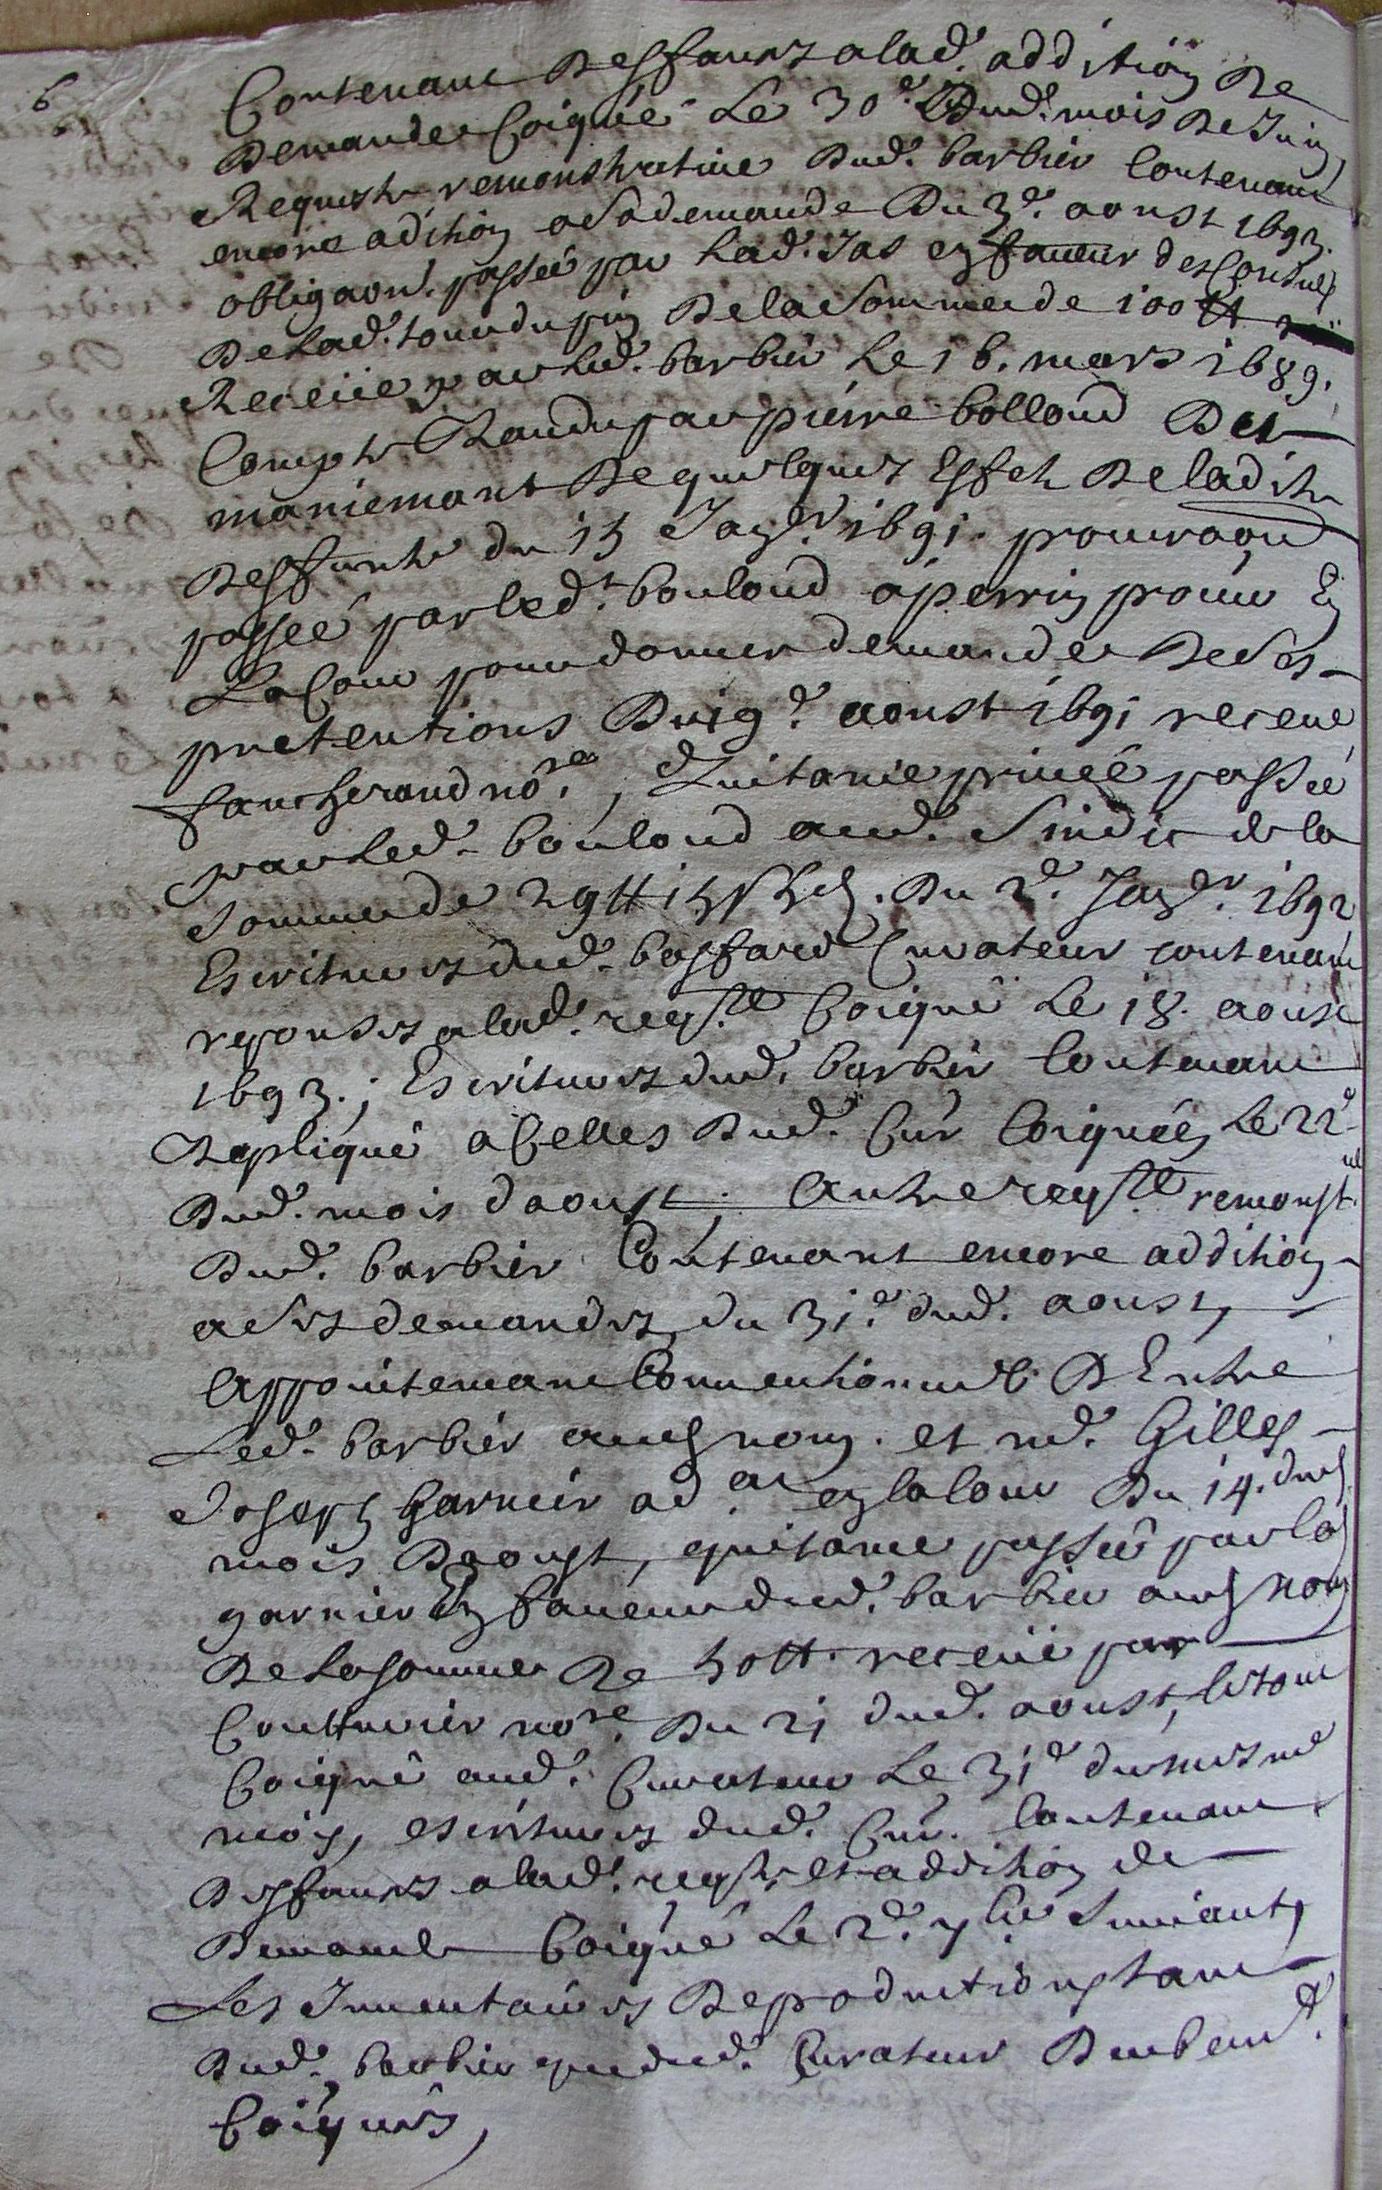 6
Contenant deffances a lad.e addition de
demande Coïquée le 30.e dud.e mois de Juin,
Requeste remonstrative dud.e barbier Contenant
encore adition a sa demande du 3.e aoust 1693.
obligaon. passée par lad.e Jas en faveur des Consuls
de lad.e tour du pin de la somme de 100 tt
Receüe par led.e barbier le 16. mars 1689,
Compte Randu par pierre bolloud des
maniemant de quelques Effets de ladite
deffunte du 15 Janv.er 1691. procuraon
passée par led.t bouloud a perrin procur En
La Cour pour donner demande de ses
pretentions du 19.e aoust 1691 receue
faucherand no.re, Quitance privée passée
par led.e bouloud aud.e sindic de la
somme de 29 tt 15 s 5 d. du 2.e Janv.er 1692
Escritures dud.e baffard Curateur contenant
reponses a lad.e reqs.te Coïqué le 18. aoust
1693.; Escritures dud.e barbier Contenant
Repliqué a Celles dud.e Cur Coiquées le 22.e
dud.e mois d'aoust. Autre reqs.te remonst.
dud.e barbier Contenant encore addition
a ses demandes du 31.e dud.e aoust,
Appointemant Conventionnel D'Entre
Led.e barbier aud nom. et m.e Gilles
Joseph Garnier ad.at en la Cour du 14. dud
mois d'aoust, quitance passée par led
garnier En faveur dud.e barbier aud nom
de la somme de 50 tt. receüe par
Couturier no.re du 21 dud.e aoust, le tout
Coïqué aud.e Curateur le 31.e du mesme
mois, escritures dud.e Cur. Contenant
deffances a lad.e reqste et addition de
demande Coïqué le 2.e 7bre suivant,
Les Inventaires de productions tant
dud.e barbier que dud.e Curateur
Coïqués,